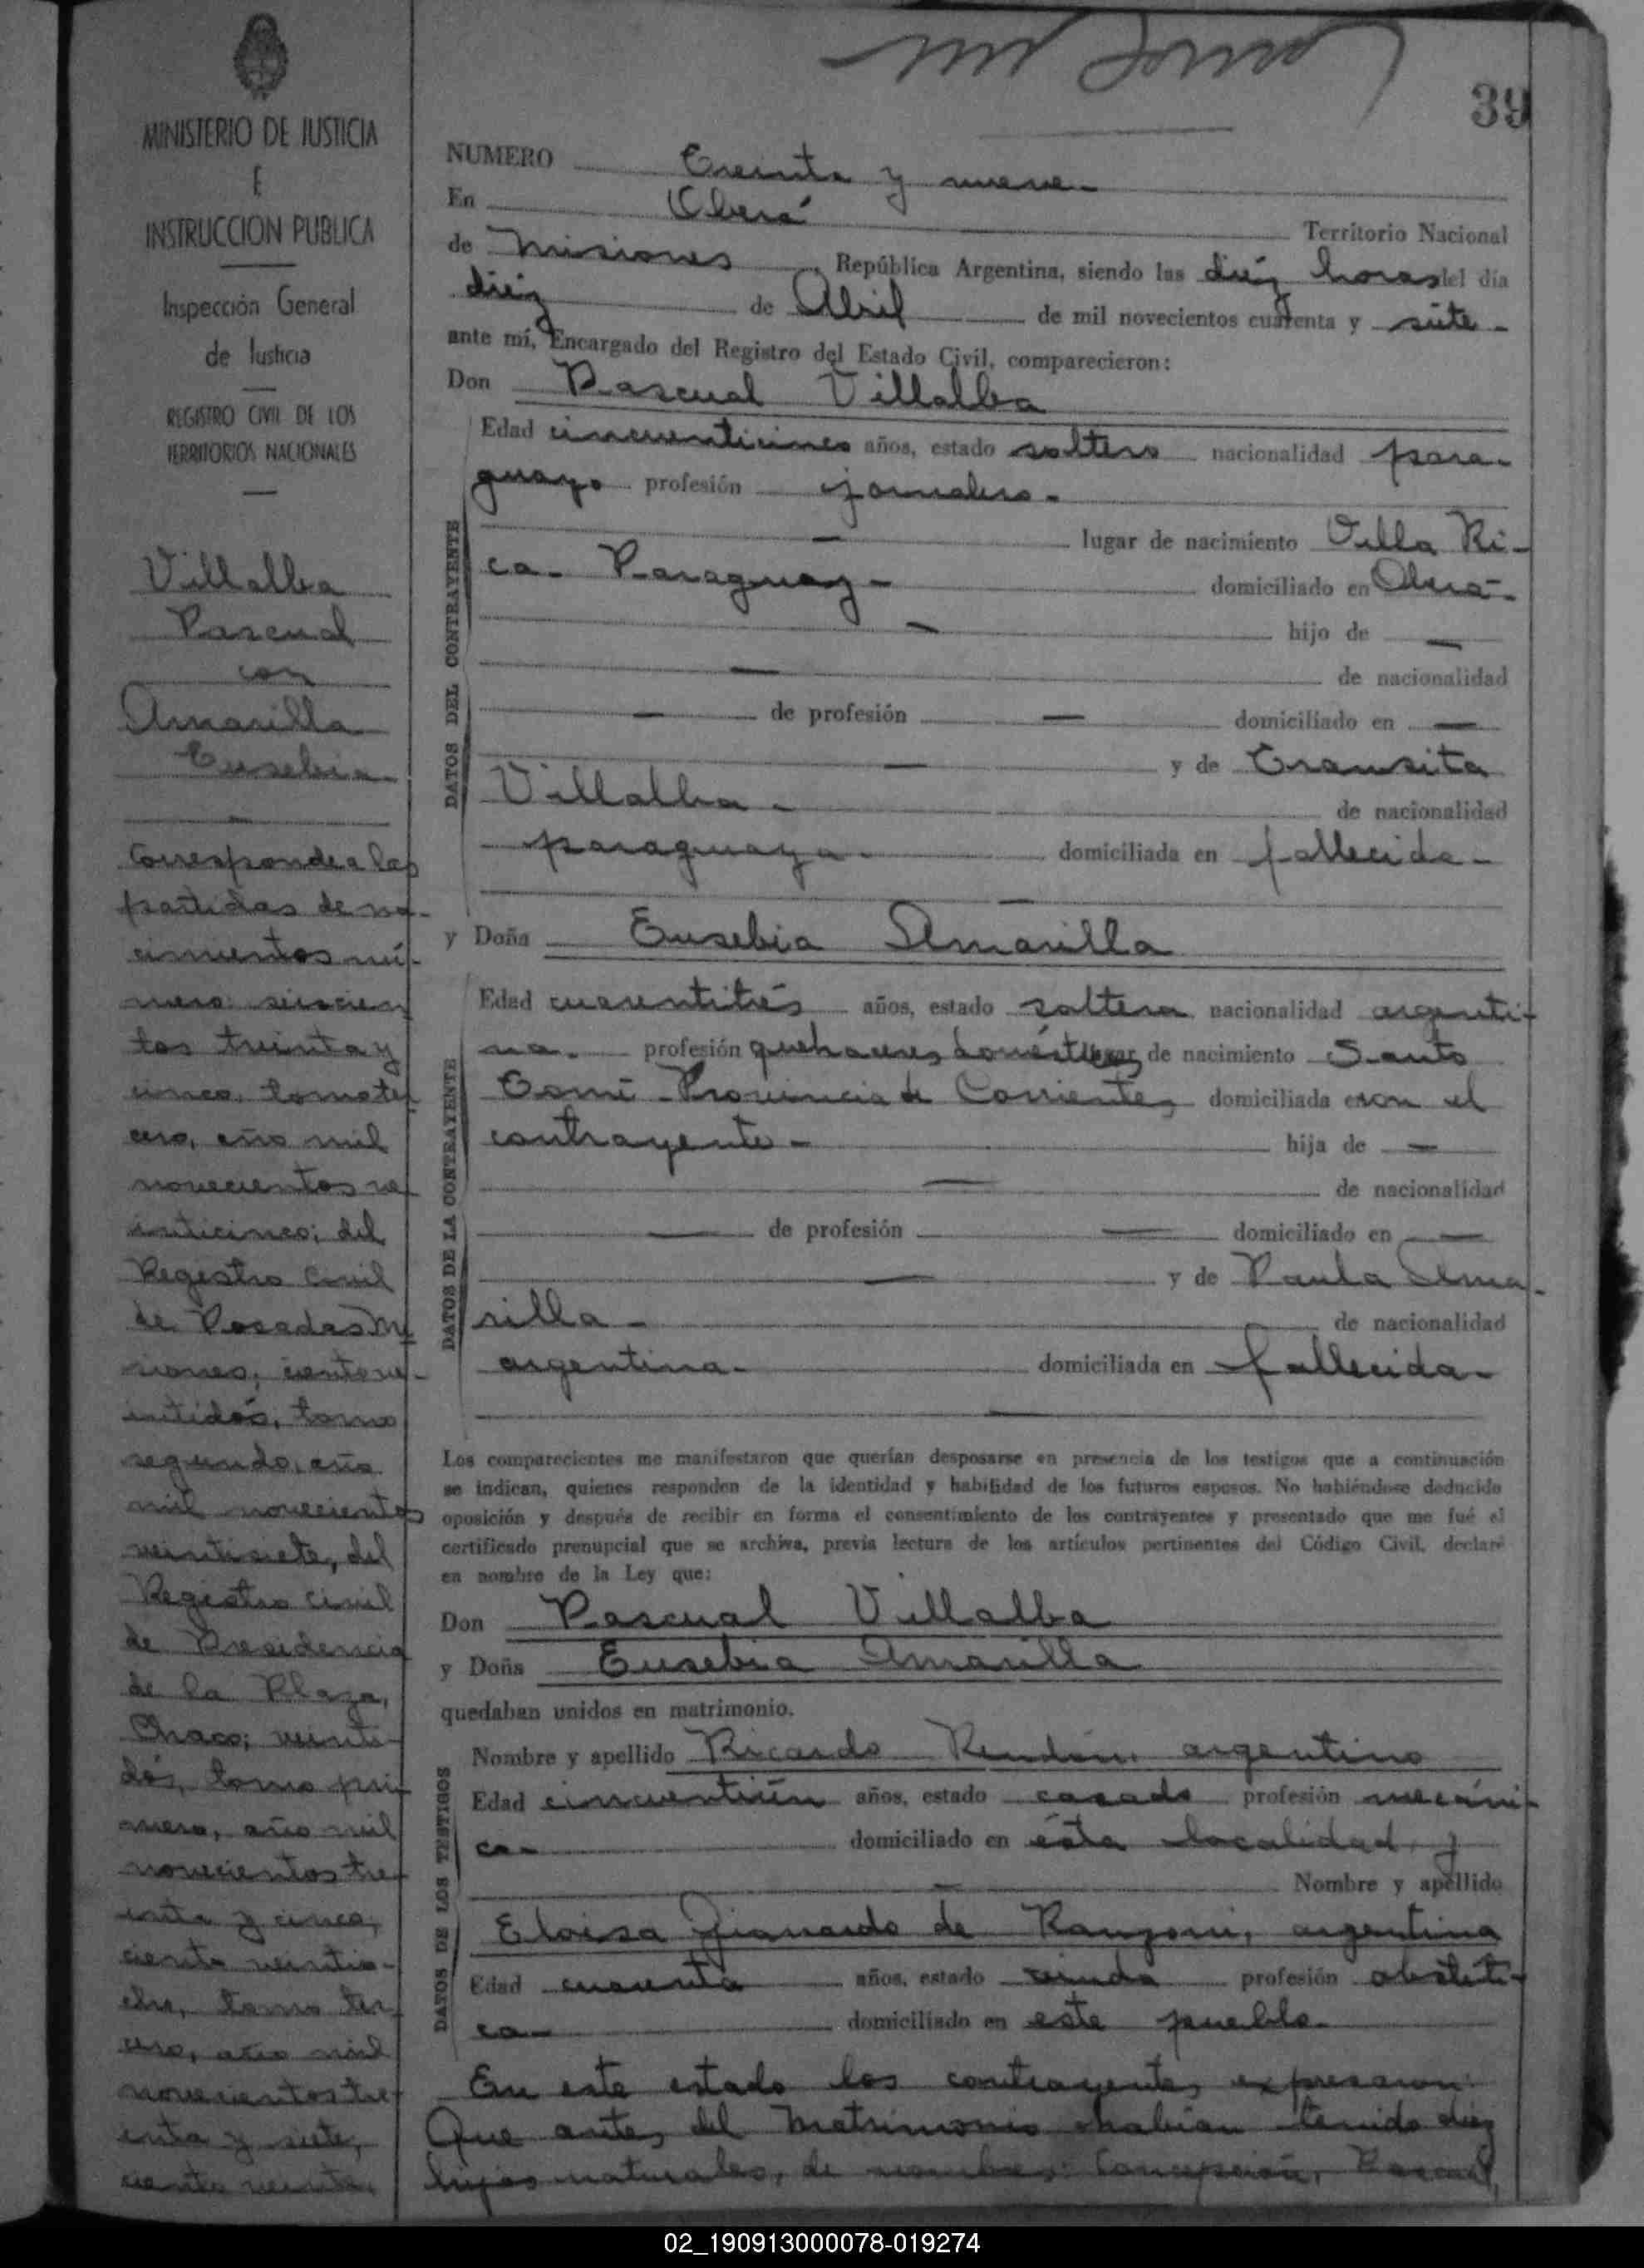 MINISTERIO DE JUSTICIA
E
INSTRUCCION PUBLICA
Inspección General
de Justicia
REGISTRO CIVIL DE LOS
TERRITORIOS NACIONALES
Villalba
Pascual
con
Amarilla
Eusebia
Corresponde a las
partidas de na-
cimientos nú-
mero: seiscien
tos treinta y
cinco, tomo ter
cero, año mil
novecientos ve
inticinco; del
Registro Civil
de Posadas Mi
siones; ciento ve-
intidós, tomo
segundo, año
mil novecientos
veintisiete, del
Registro civil
de Presidencia
de la Plaza,
Chaco; veinti-
dós, tomo pri
mero, año mil
novecientos tre
inta y cinco;
ciento veintio-
cho, tomo ter
cero, año mil
novecientos tre
inta y siete,
ciento veinte,
39
NUMERO Treinta y nueve.-
En Oberá Territorio Nacional
de Misiones, República Argentina, siendo las diez horas del día
diez de Abril de mil novecientos cuarenta y siete-
ante mí, Encargado del Registro del Estado Civil, comparecieron:
Don Pascual Villalba
Edad cincuenticinco años, estado soltero nacionalidad para-
guayo profesión jornalero.-
DATOS DEL CONTRAYENTE
lugar de nacimiento Villa Ri-
ca- Paraguay- domiciliado en Oberá-
hijo de
de nacionalidad
de profesión domiciliado en
y de Transita
Villalba- de nacionalidad
paraguaya- domiciliada en fallecida-
y Doña Eusebia Amarilla
Edad cuarentitrés años, estado soltera nacionalidad argenti-
na- profesión quehaceres domésticos lugar de nacimiento Santo
Tomé- Provincia de Corrientes, domiciliada en con el
contrayente- hija de
DATOS DE LA CONTRAYENTE
de nacionalidad
de profesión domiciliado en
y de Paula Ama-
rilla- de nacionalidad
argentina- domiciliada en fallecida-
Los comparecientes me manifestaron que querían desposarse en presencia de los testigos que a continuación
se indican, quienes responden de la identidad y habilidad de los futuros esposos. No habiéndose deducido
oposición y después de recibir en forma el consentimiento de los contrayentes y presentado que me fué el
certificado prenupcial que se archiva, previa lectura de los artículos pertinentes del Código Civil, declaré
en nombre de la Ley que:
Don Pascual Villalba
y Doña Eusebia Amarilla
quedaban unidos en matrimonio.
DATOS DE LOS TESTIGOS
Nombre y apellido Ricardo Rendón, argentino
Edad cincuentiún años, estado casado profesión mecáni-
co- domiciliado en ésta localidad, y
Nombre y apellido
Eloisa de Ranzoni, argentina
Edad cuarenta años, estado viuda profesión obstetri-
ca- domiciliado en este pueblo.
En este estado los contrayentes expresaron:
Que antes del Matrimonio habían tenido diez
hijos naturales, de nombres: Concepción, Pascual,
02_190913000078-019274